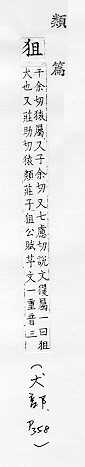 類篇
狙
千余切猿屬又子余切又七慮切說文玃屬一曰狙
犬也又莊助切猿類莊子狙公賦芧文一重音三
(犬部, P.358)